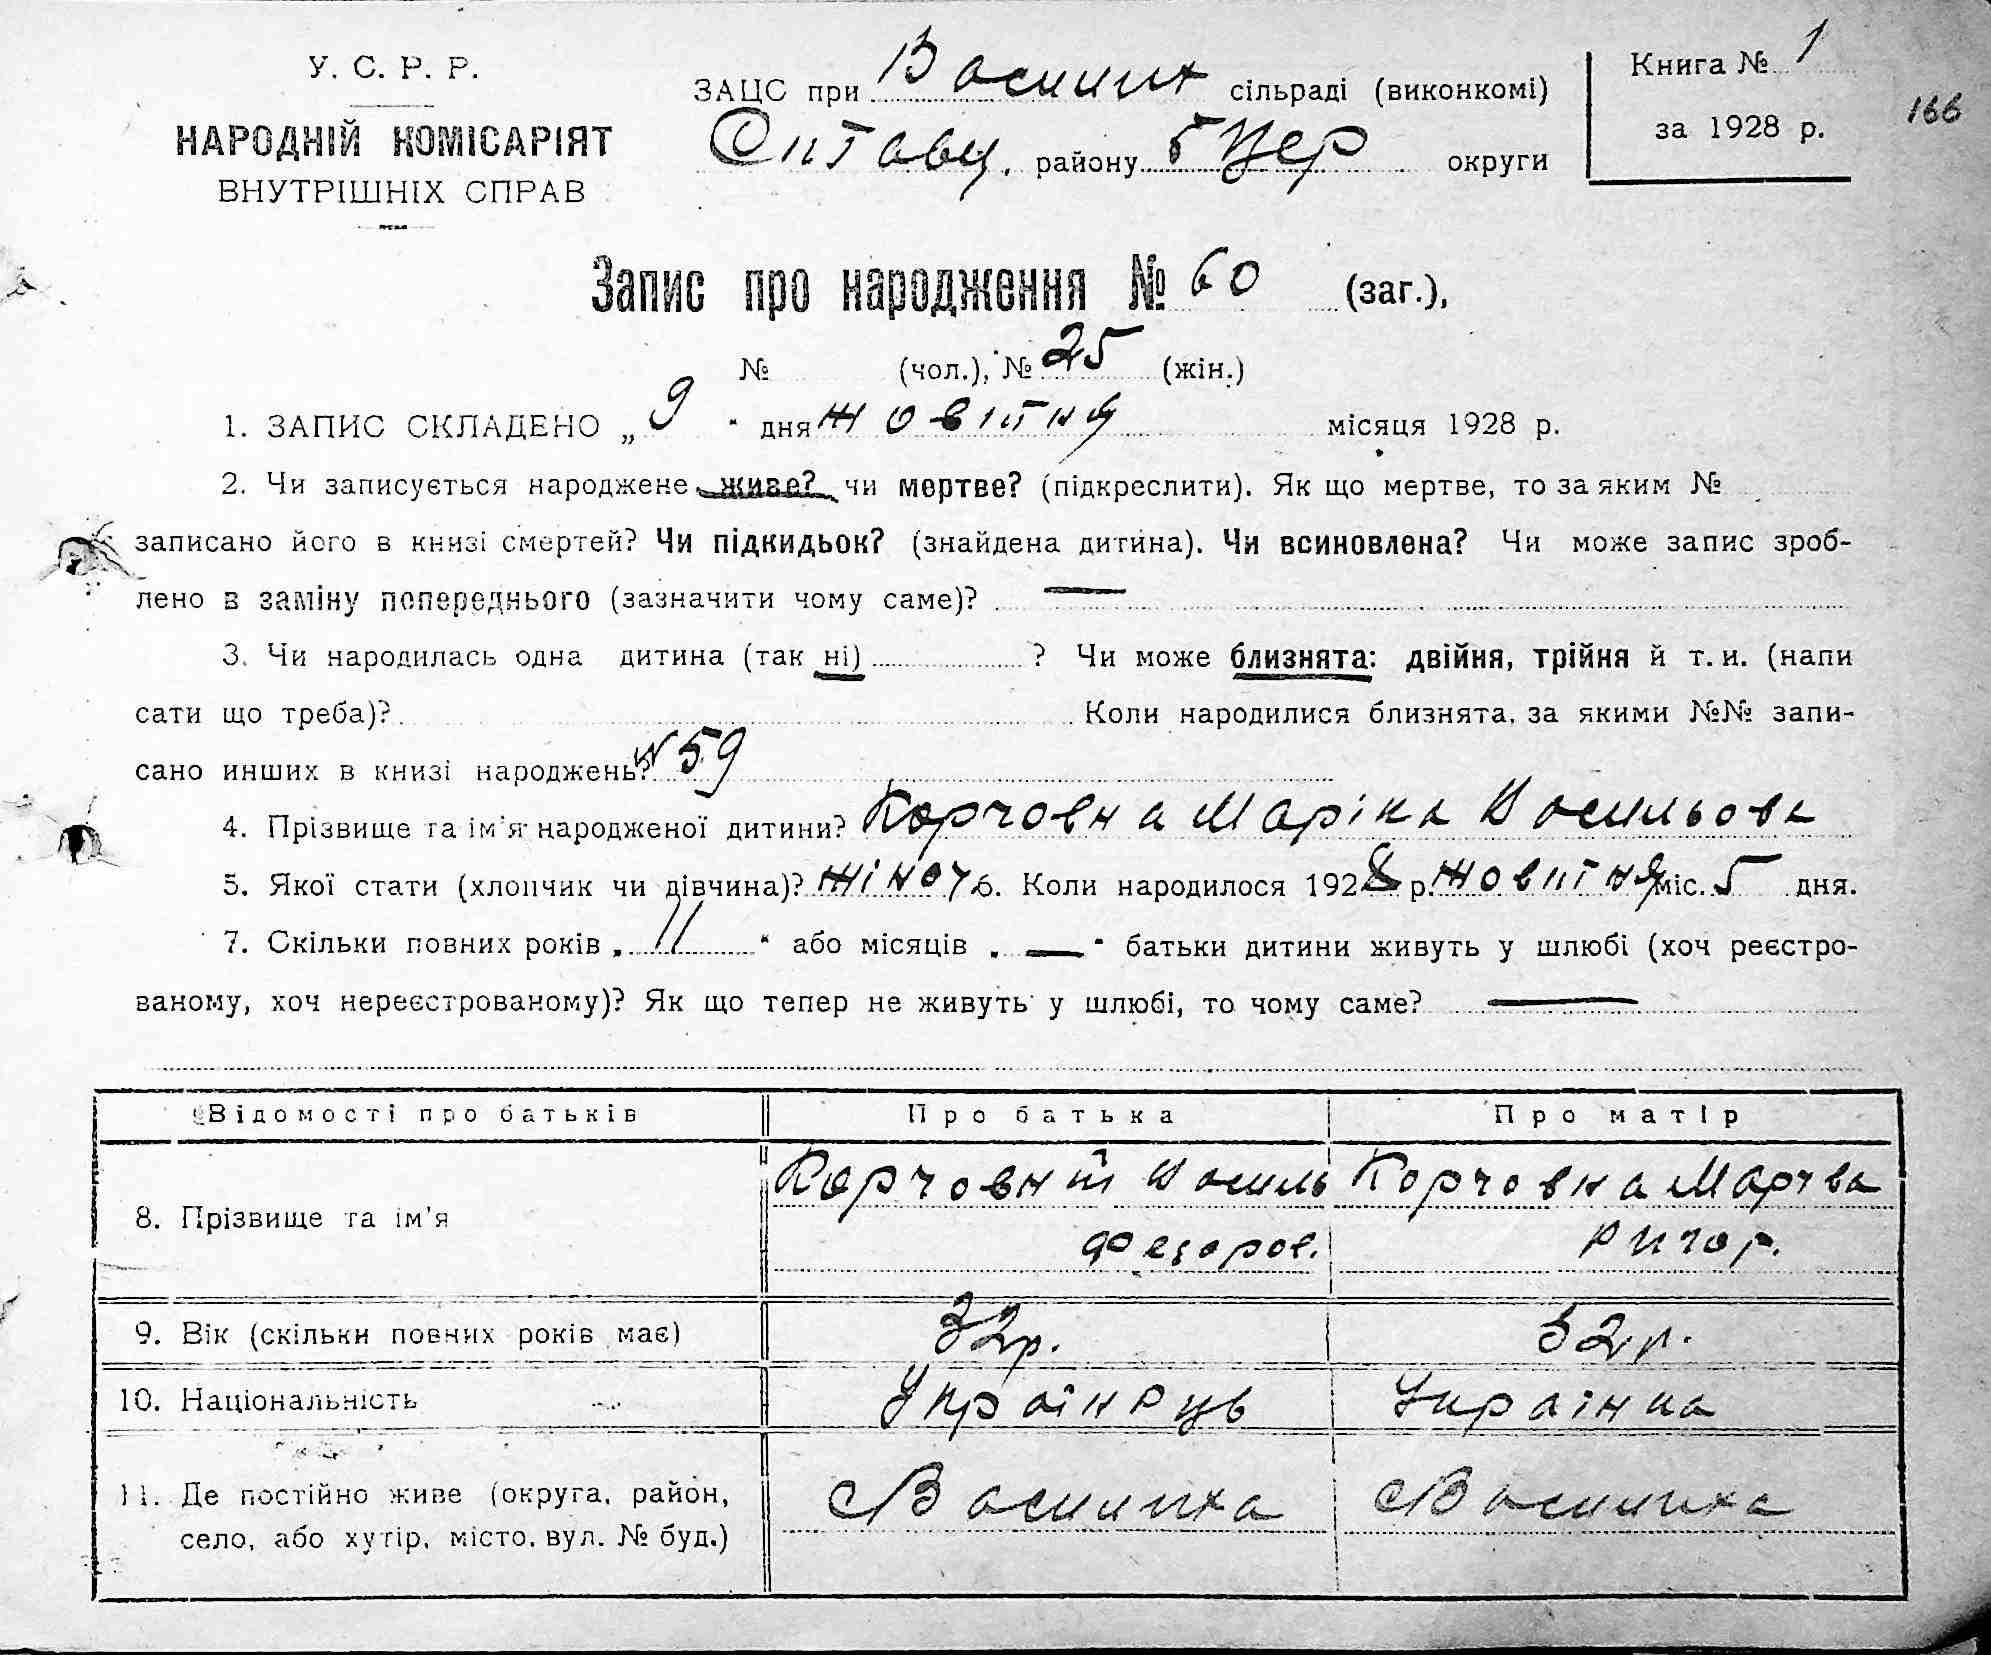 У. С. Р. Р.
НАРОДНІЙ КОМІСАРІЯТ
ВНУТРІШНІХ СПРАВ
ЗАЦС при Василих сільраді (виконкомі)
району БЦер округи
Книга № 1
за 1928 р.
166
Запис про народження № 60 (заг.),
№ (чол.), № 25 (жін.)
1. ЗАПИС СКЛАДЕНО „ 9 “ дня жовтня місяця 1928 р.
2. Чи записується народжене живе? чи мертве? (підкреслити). Як що мертве, то за яким №
записано його в книзі смертей? Чи підкидьок? (знайдена дитина). Чи всиновлена? Чи може запис зроб-
лено в заміну попереднього (зазначити чому саме)? —
3. Чи народилась одна дитина (так ні) ? Чи може близнята: двійня, трійня й т. и. (напи
сати що треба)? Коли народилися близнята, за якими №№ запи-
сано инших в книзі народжень? N 59
4. Прізвище та ім'я народженої дитини? Корчовна Маріка Васильова
5. Якої стати (хлопчик чи дівчина)? жіноч 6. Коли народилося 1928 р. жовтня міс. 5 дня.
7. Скільки повних років „ 11 “ або місяців „ — “ батьки дитини живуть у шлюбі (хоч реєстро-
ваному, хоч нереєстрованому)? Як що тепер не живуть у шлюбі, то чому саме? —
Відомості про батьків Про батька Про матір
8. Прізвище та ім'я Корчовний Василь Корчовна
Федоров. Ригор.
9. Вік (скільки повних років має) 32 р. 32 р.
10. Національність Українець Українка
11. Де постійно живе (округа, район,
село, або хутір, місто, вул. № буд.)